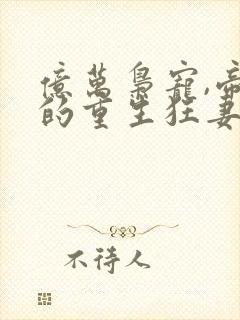 億萬梟寵,帝
的重生狂妻
不待人